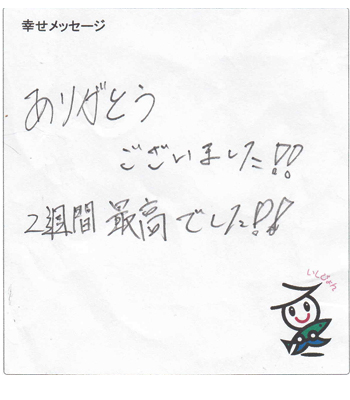 幸せメッセージ
ありがとう
ございました!!
2週間最高でした!!